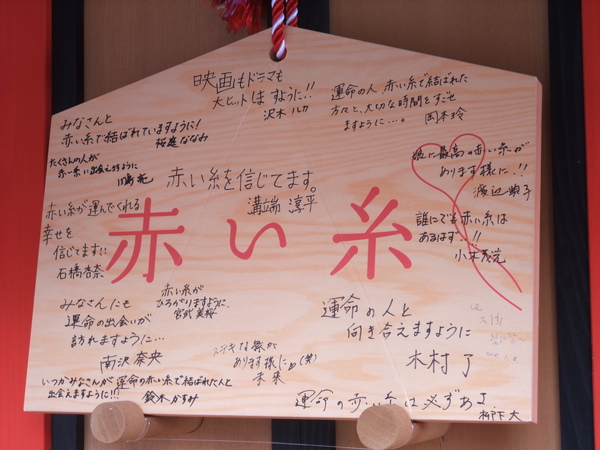 映画もドラマも
大ヒットしますように!!
沢木ルカ
運命の人、赤い糸で結ばれた
方々と、大切な時間をすごせ
ますように…。
岡本玲
みなさんと
赤い糸で結ばれていますように!
桜庭ななみ
たくさんの人が
赤い糸に出会えますように
赤い糸を信じてます。
溝端 淳平
娘に最高の赤い糸が
あります様に.!!
渡辺典子
赤い糸が運んでくれる
幸せを
信じてます…
石橋杏奈
赤い糸
誰にでも赤い糸は
あるはず..!!
小木茂光
みなさんにも
運命の出会いが
訪れますように…
南沢奈央
赤い糸が
ひろがりますように、
宮武美桜
ステキな縁が
あります様に
未来
運命の人と
向き合えますように
木村了
いつかみなさんが運命の赤い糸で結ばれた人と
出会えますように!!!
鈴木かすみ
運命の赤い糸は必ずあるよ
柳下大